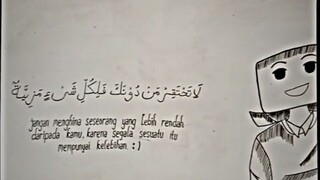 لَا تَحْتَقِرْ مَنْ دُوْنَكَ فَلِكُلِّ شَيْءٍ مَزِيَّةٌ
jangan menghina seseorang yang lebih rendah
daripada kamu, karena segala sesuatu itu
mempunyai kelebihan. :)